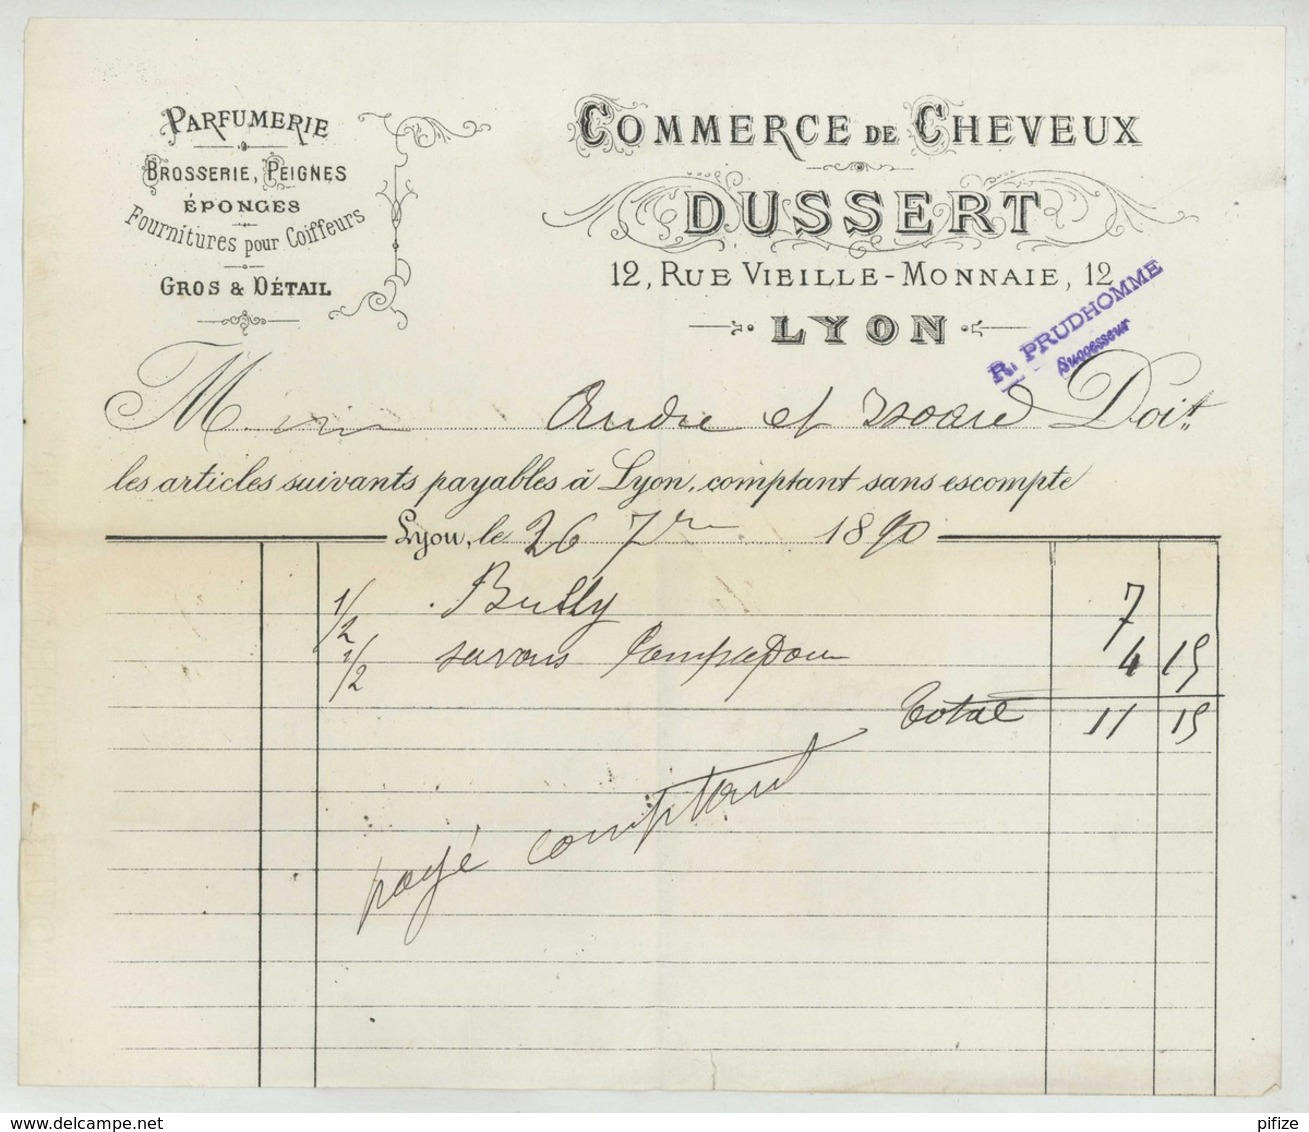 PARFUMERIE
BROSSERIE, PEIGNES
ÉPONGES
Fournitures pour Coiffeurs
GROS & DÉTAIL
COMMERCE DE CHEVEUX
DUSSERT
12, RUE VIEILLE-MONNAIE, 12
LYON
R. PRUDHOMME
Successeur
M Andre et Doit
les articles suivants payables à Lyon, comptant sans escompte
Lyon, le 26 7re 1890
1/2 Bully 7
1/2 savons Pompadour 4 15
Total 11 15
payé comptant
delcampe.net
pifize